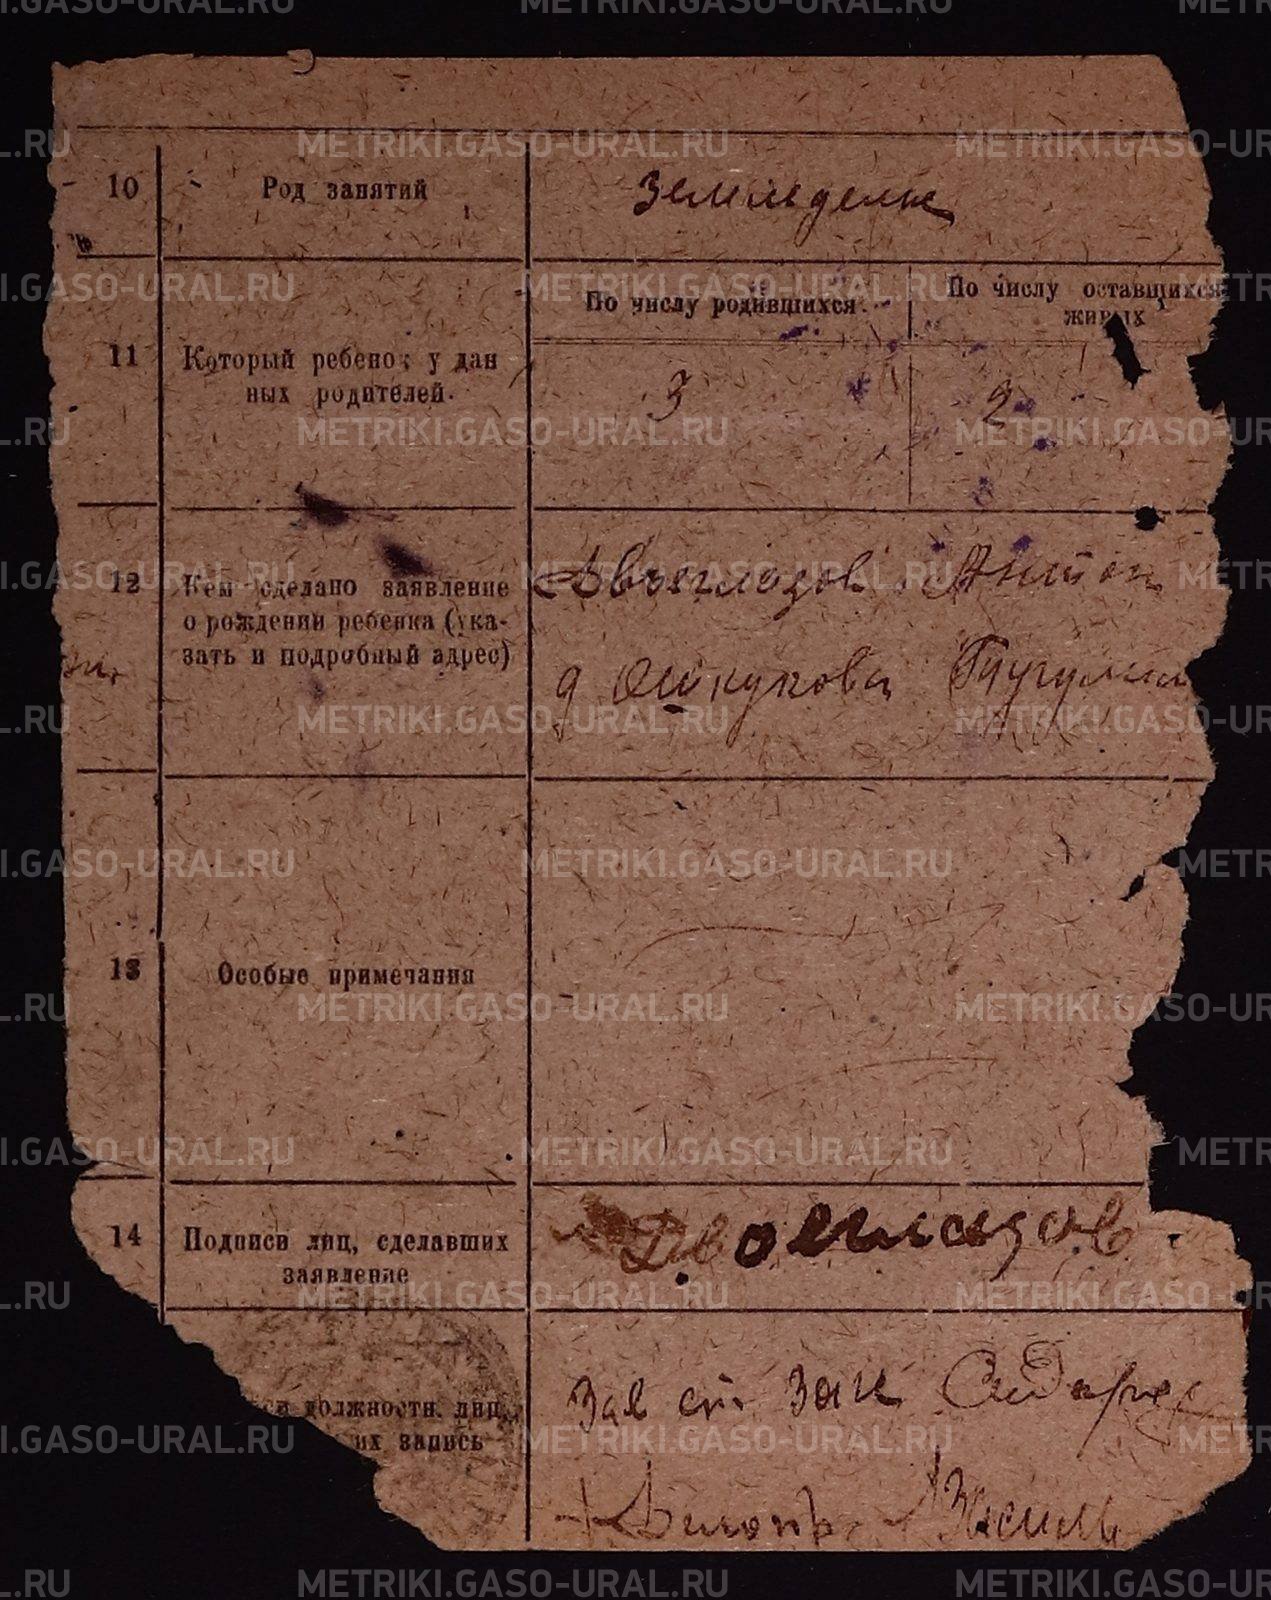 10 Род занятий Земледелие
По числу родившихся. По числу оставщихся
живых
11 Который ребенок у дан
ных родителей.
3 2
12 Кем сделано заявление
о рождении ребенка (ука-
зать и подробный адрес)
Двоеглазов Антон
д
13 Особые примечания
14 Подписи лиц, сделавших
заявление
Двоеглазов
си должностн. лиц,
их запись
Зав ст
Делопр.
METRIKI.GASO-URAL.RU